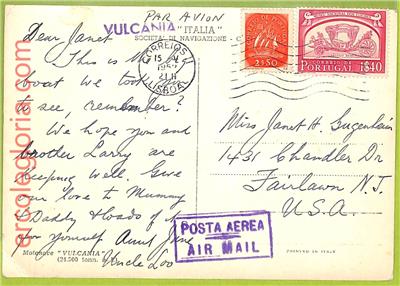 PAR AVION
VULCANIA "ITALIA"
SOCIETÀ DI NAVIGAZIONE
Dear Janet
This is the
boat we took
to see. remember?
We hope you and
brother Larry are
keeping well. Give
our love to Mummy
& Daddy & loads of it
for yourself Aunt
Uncle Lou
Motonave "VULCANIA"
(24.500 tonn.
CORREIOS
LISBOA
2$50
PORTUGAL
1$40
Miss Janet H. Gugenheim
1431 Chandler Dr
Fairlawn N.J.
U.S.A.
POSTA AEREA
AIR MAIL
PRINTED IN ITALY
eroclegloria.com